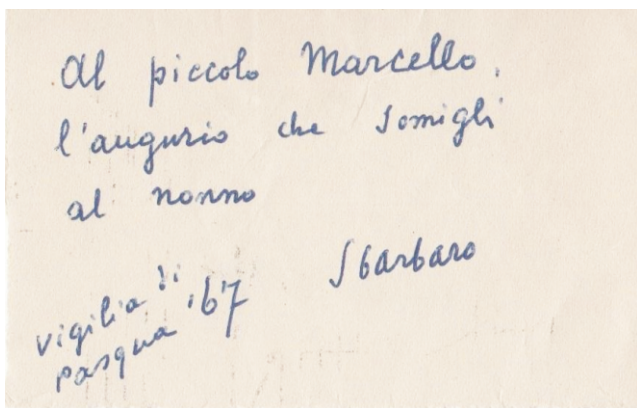 Al piccolo Marcello,
l'augurio che somigli
al nonno
Sbarbaro
vigilia di
pasqua '67